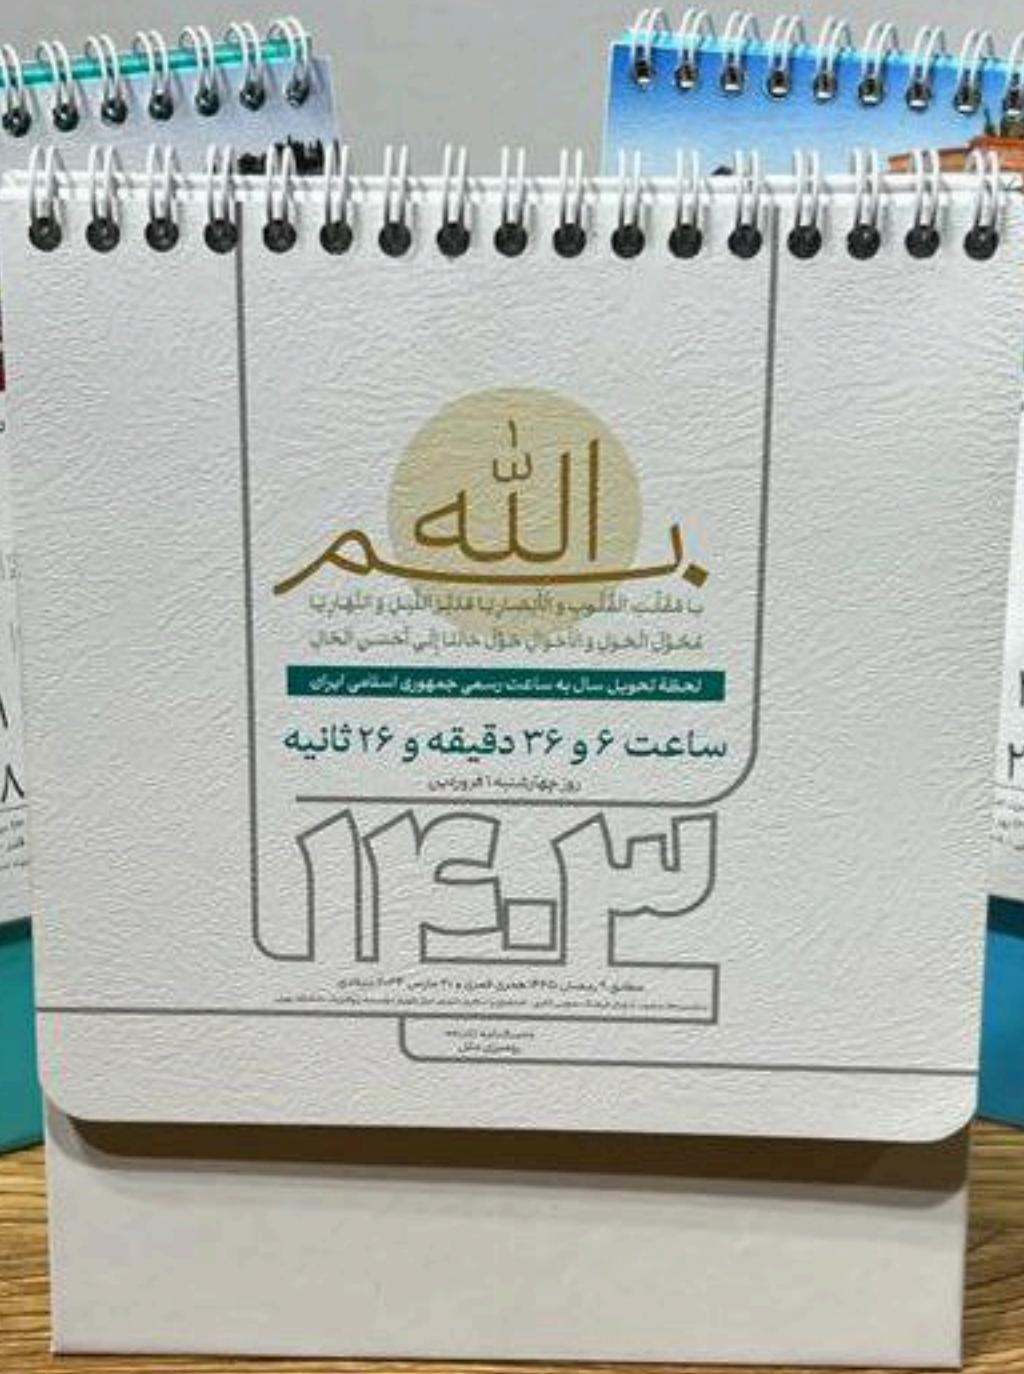 بسم الله
یا مُقَلِّبَ القُلُوبِ وَ الأبصارِ یا مُدَبِّرَ اللَّیلِ وَ النَّهارِ یا
مُحَوِّلَ الحَولِ وَ الأحوالِ حَوِّل حالَنا إلی أحسَنِ الحالِ
لحظهٔ تحویل سال به ساعت رسمی جمهوری اسلامی ایران
ساعت ۶ و ۳۶ دقیقه و ۲۶ ثانیه
روز چهارشنبه ۱ فروردین
۱۴۰۳
مطابق ۹ رمضان ۱۴۴۵ هجری قمری و ۲۰ مارس ۲۰۲۴ میلادی